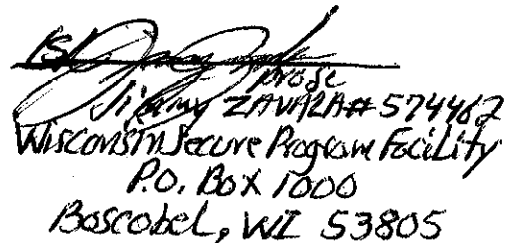 /S/
pro se
Jimmy ZAVALA# 574462
Wisconsin Secure Program Facility
P.O. Box 1000
Boscobel, WI 53805